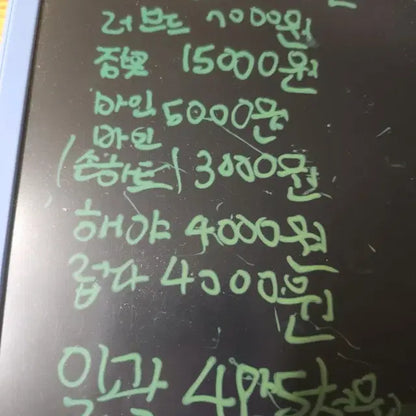 러브드 7000원
잠못 15000원
마인 5000원
마인
(손하트) 3000원
해야 4000원
럽다 4000원
일괄 4만5천원